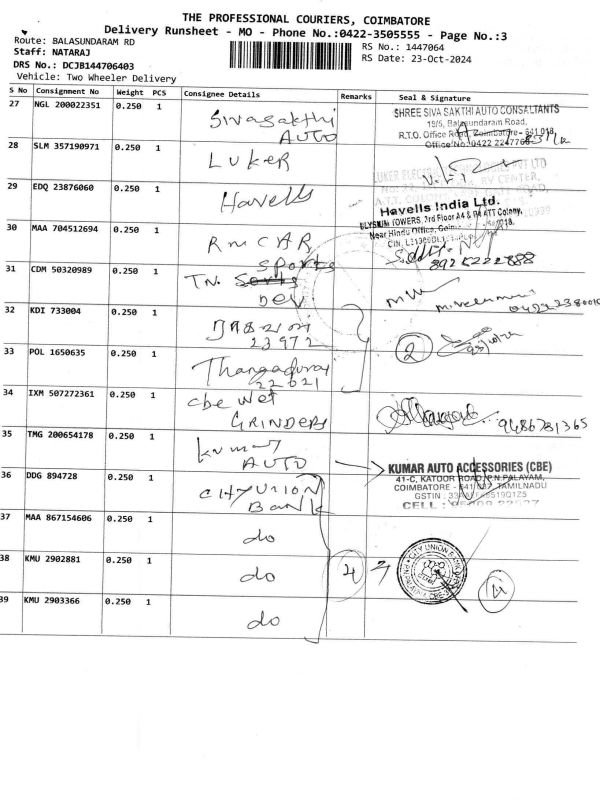 THE PROFESSIONAL COURIERS, COIMBATORE
Delivery Runsheet - MO - Phone No.:0422-3505555 - Page No.:3
Route: BALASUNDARAM RD
RS No.: 1447064
Staff: NATARAJ
RS Date: 23-Oct-2024
DRS No.: DCJB144706403
Vehicle: Two Wheeler Delivery
S No Consignment No Weight PCS Consignee Details Remarks Seal & Signature
27 NGL 200022351 0.250 1 Sivasakthi AUTO
SHREE SIVA SAKTHI AUTO CONSALTANTS
19/5, Balasundaram Road,
R.T.O. Office Road, Coimbatore - 641 018.
Office No: 0422
28 SLM 357190971 0.250 1 LUKER
29 EDQ 23876060 0.250 1 Havells
Havells India Ltd.
ELYSIUM TOWERS, 3rd Floor A4 & B4 ATT Colony,
Near Hindu Office,
30 MAA 704512694 0.250 1 RM CAR Sports
8925222888
31 CDM 50320989 0.250 1 TN. Dev
32 KDI 733004 0.250 1
23972
2
33 POL 1650635 0.250 1 Thangadurai
22621
34 IXM 507272361 0.250 1 cbe wet GRINDERS
9486781365
35 TMG 200654178 0.250 1 Kumar AUTO
KUMAR AUTO ACCESSORIES (CBE)
41-C, KATOOR ROAD, P.N.PALAYAM,
COIMBATORE - 641 037. TAMILNADU
36 DDG 894728 0.250 1 CITY UNION BANK
37 MAA 867154606 0.250 1 do
38 KMU 2902881 0.250 1 do
4
39 KMU 2903366 0.250 1 do